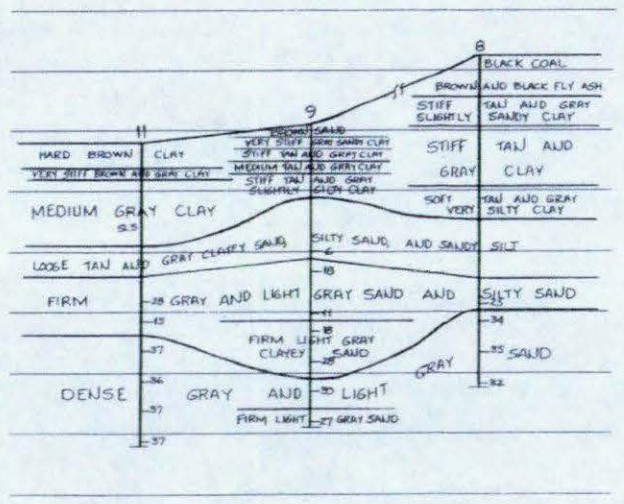 8
BLACK COAL
BROWN AND BLACK FLY ASH
STIFF TAN AND GRAY
SLIGHTLY SANDY CLAY
9
11
BROWN SAND
VERY STIFF GRAY SANDY CLAY
STIFF TAN AND GRAY CLAY
MEDIUM TAN AND GRAY CLAY
STIFF TAN AND GRAY
SLIGHTLY SILTY CLAY
HARD BROWN CLAY
VERY STIFF BROWN AND GRAY CLAY
STIFF TAN AND
GRAY CLAY
SOFT TAN AND GRAY
VERY SILTY CLAY
MEDIUM GRAY CLAY
LOOSE TAN AND GRAY CLAYEY SAND, SILTY SAND, AND SANDY SILT
6
18
FIRM 28 GRAY AND LIGHT GRAY SAND AND SILTY SAND
11
15
18
34
FIRM LIGHT GRAY
CLAYEY SAND
37
28
35
GRAY SAND
36
30
32
DENSE GRAY AND LIGHT
37
FIRM LIGHT 27 GRAY SAND
37